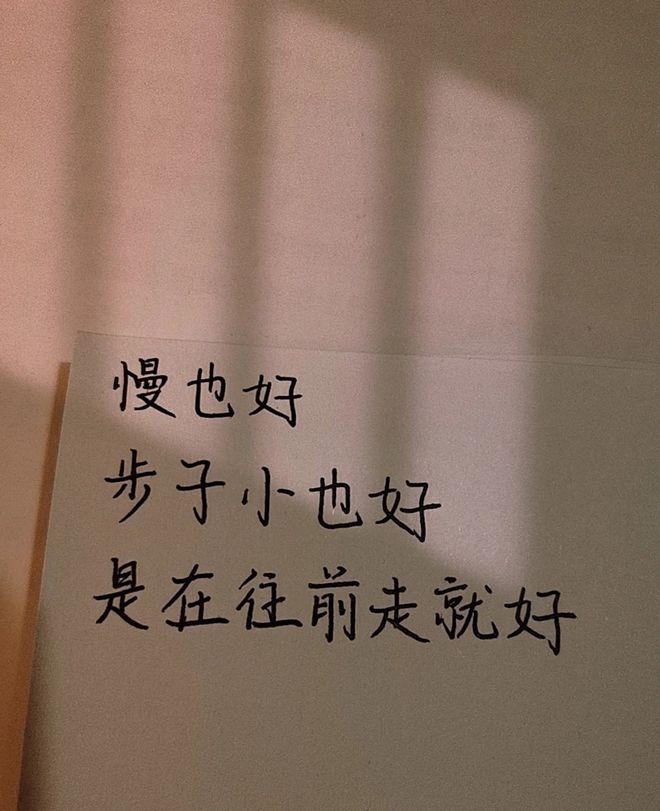 慢也好
步子小也好
是在往前走就好